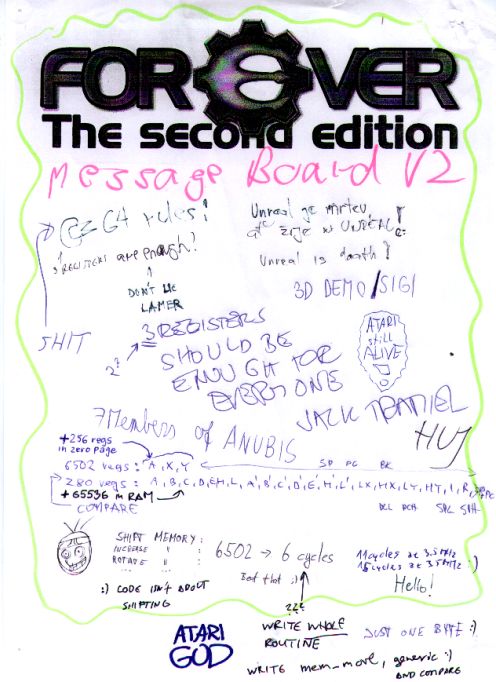 FOREVER
The second edition
Message Board V2
C= 64 rules!
Unreal je mrtev
ať žije
UNREAL
3 REGISTERS are enough!
Unreal is death!
DON'T BE
LAMER
3D DEMO/SIGI
SHIT
3 REGISTERS
SHOULD BE
ENOUGH FOR
EVERYONE
ATARI
still
ALIVE
JACK TRAMIEL
7 Members of ANUBIS
HUJ
+256 regs
in zero page
SP PC
6502 regs: A,X,Y
Z80 regs: A,B,C,D,E,H,L,A',B',C',D',E',H',L',LX,HX,LY,HY,I,R,
+ 65536 in RAM
COMPARE
PCL PCH SPL SPH
SHIFT MEMORY:
INCREASE " :
ROTATE " :
6502 → 6 cycles
11 cycles at 3.5 MHz
15 cycles at 3.5 MHz :)
Beat that :)
Hello!
:) CODE ISN'T ABOUT
SHIFTING
???
ATARI
GOD
WRITE WHOLE
ROUTINE
JUST ONE BYTE :)
WRITE mem_move, generic :)
AND COMPARE